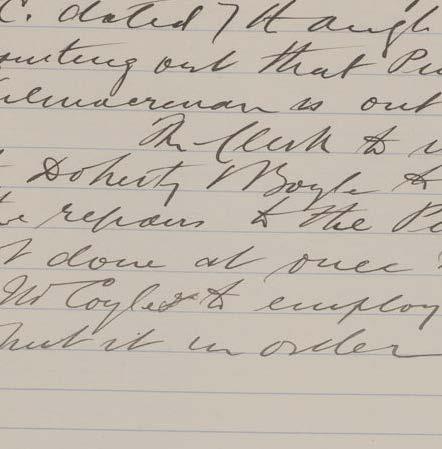 C. dated 7th Augt
ointing out that Pu
Kilmacrenan is out
The Clerk to w
t Doherty & Boyle to
the repairs to the Pu
t done at once
Mr Coyle to employ
put it in order